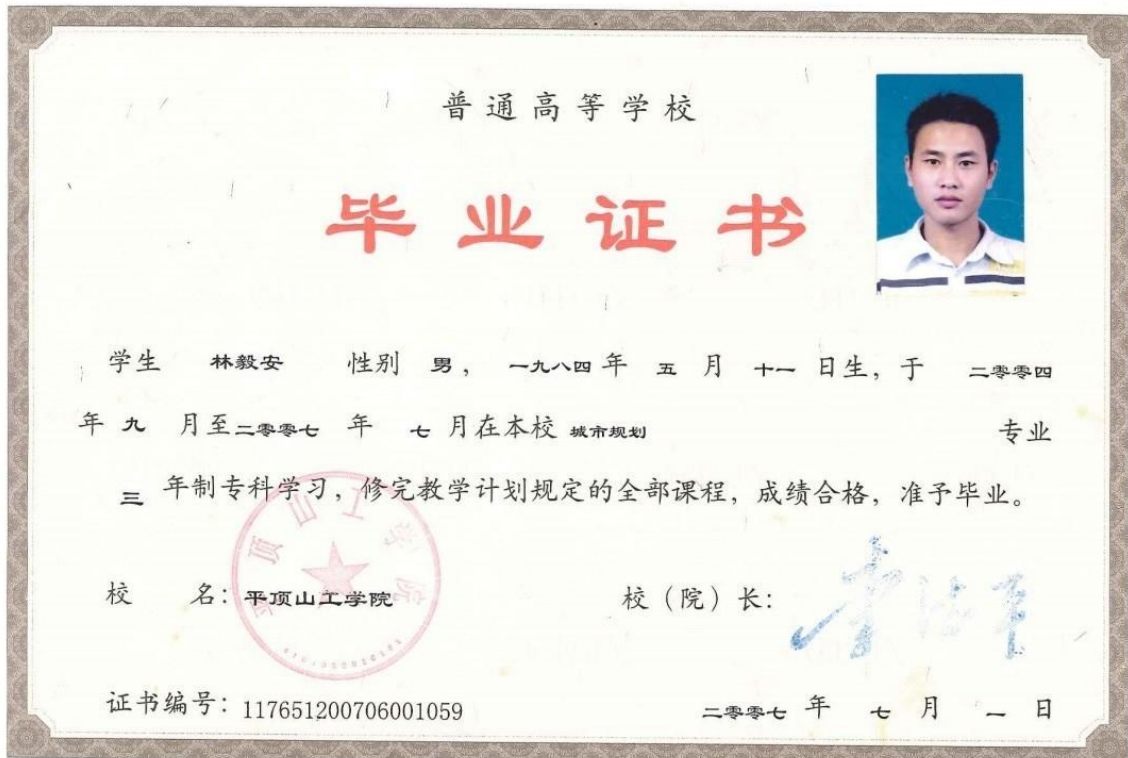 普通高等学校
毕业证书
学生 林毅安 性别 男，一九八四 年 五 月 十一 日生，于 二零零四
年 九 月至二零零七 年 七 月在本校 城市规划 专业
三 年制专科学习，修完教学计划规定的全部课程，成绩合格，准予毕业。
平顶山工学院
校 名：平顶山工学院 校（院）长：
证书编号：117651200706001059 二零零七 年 七 月 一 日